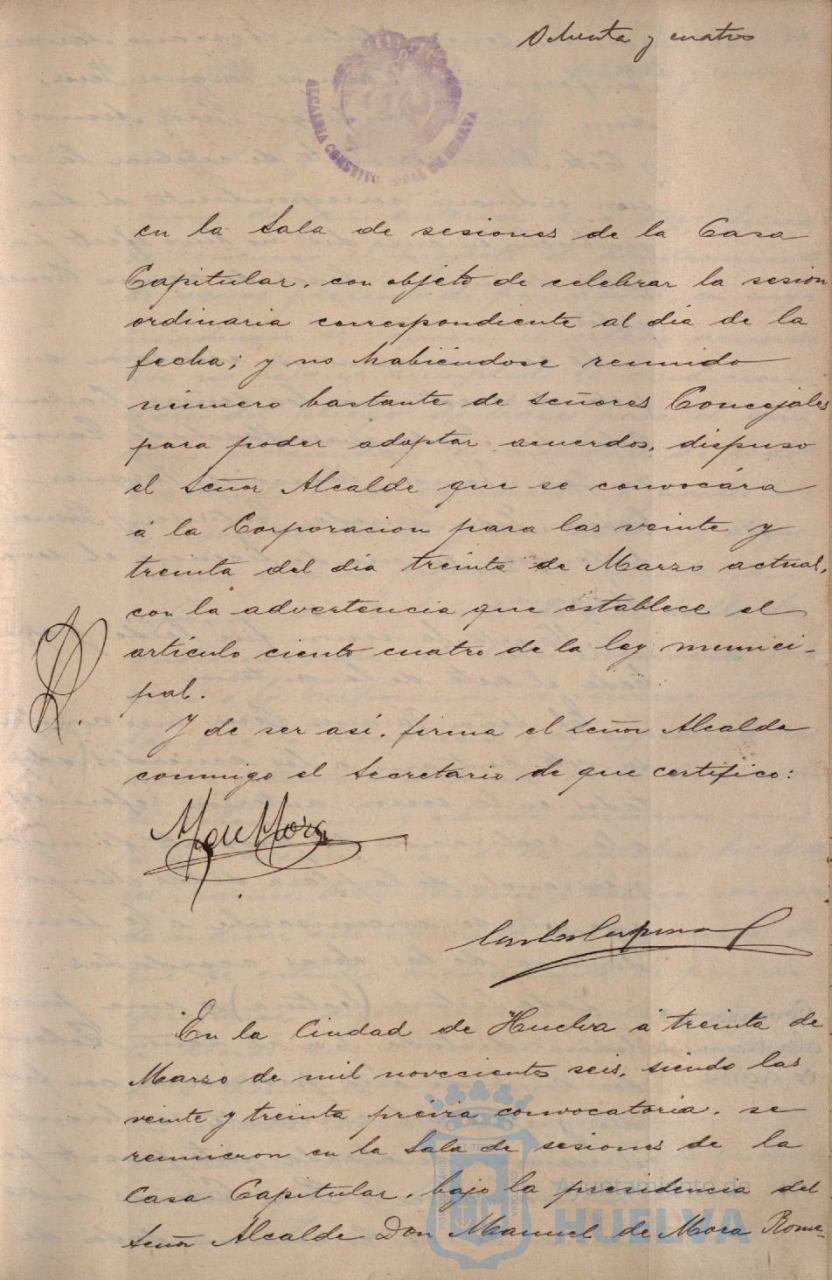 Ochenta y cuatro
ALCALDIA CONSTITUCIONAL DE HUELVA
en la Sala de sesiones de la Casa
Capitular, con objeto de celebrar la sesion
ordinaria correspondiente al dia de la
fecha; y no habiéndose reunido
número bastante de Señores Concejales
para poder adoptar acuerdos, dispuso
el Señor Alcalde que se convocára
á la Corporacion para las veinte y
treinta del dia treinta de Marzo actual,
con la advertencia que establece el
artículo ciento cuatro de la ley munici-
pal.
Y de ser así, firma el Señor Alcalde
conmigo el Secretario de que certifico:
M. de Mora
En la Ciudad de Huelva á treinta de
Marzo de mil novecientos seis, siendo las
veinte y treinta prévia convocatoria, se
reunieron en la Sala de sesiones de la
Casa Capitular, bajo la presidencia del
Señor Alcalde Don Manuel de Mora Rome-
Ayuntamiento de
HUELVA